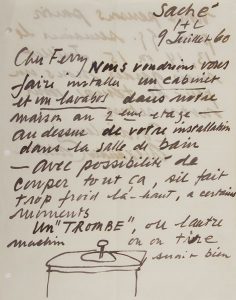 Saché
I+L
9 Juillet 60
Cher Ferry Nous voudrions vous
faire installer un cabinet
et un lavabos dans notre
maison au 2ème etage —
au dessus de votre installation
dans la salle de bain
— avec possibilité de
couper tout ça, si il fait
trop froid là-haut, a certains
moments
Un "TROMBE", ou l'autre
machin où on tire
serait bien